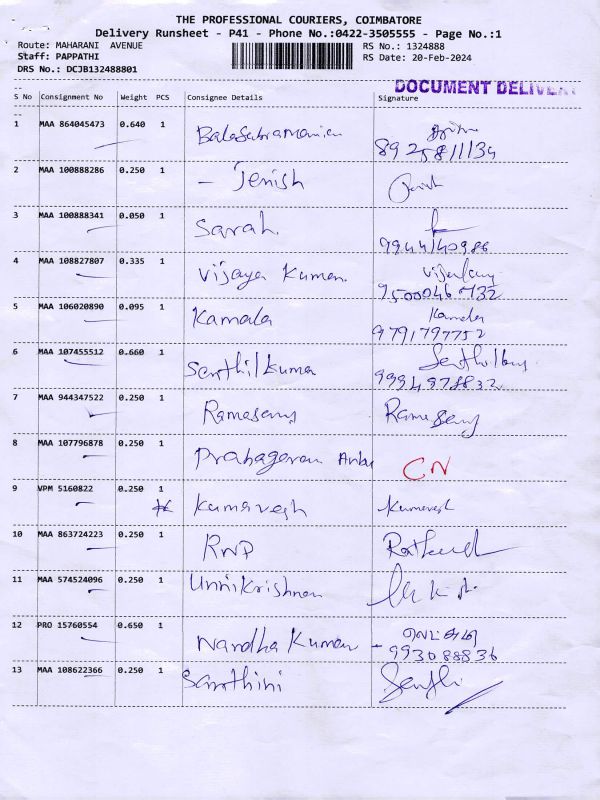 THE PROFESSIONAL COURIERS, COIMBATORE
Delivery Runsheet - P41 - Phone No.:0422-3505555 - Page No.:1
Route: MAHARANI AVENUE RS No.: 1324888
Staff: PAPPATHI RS Date: 20-Feb-2024
DRS No.: DCJB132488801
DOCUMENT DELIVERY
S No Consignment No Weight PCS Consignee Details Signature
1 MAA 864045473 0.640 1 Balasubramanian
8925811134
2 MAA 100888286 0.250 1 - Jenish
3 MAA 100888341 0.050 1 Sarah.
9944140986
4 MAA 108827807 0.335 1 Vijaya Kumar.
9500046732
5 MAA 106020890 0.095 1 Kamala Kamala
9791797752
6 MAA 107455512 0.660 1 Senthil kumar
9994978832
7 MAA 944347522 0.250 1 Ramasamy Ramasamy
8 MAA 107796878 0.250 1 Prabagaran Anbu CN
9 VPM 5160822 0.250 1 Kumaresh Kumaresh
10 MAA 863724223 0.250 1 RNP
11 MAA 574524096 0.250 1 Unnikrishnan
12 PRO 15760554 0.650 1 Nandha Kumar -
993088836
13 MAA 108622366 0.250 1 Santhini